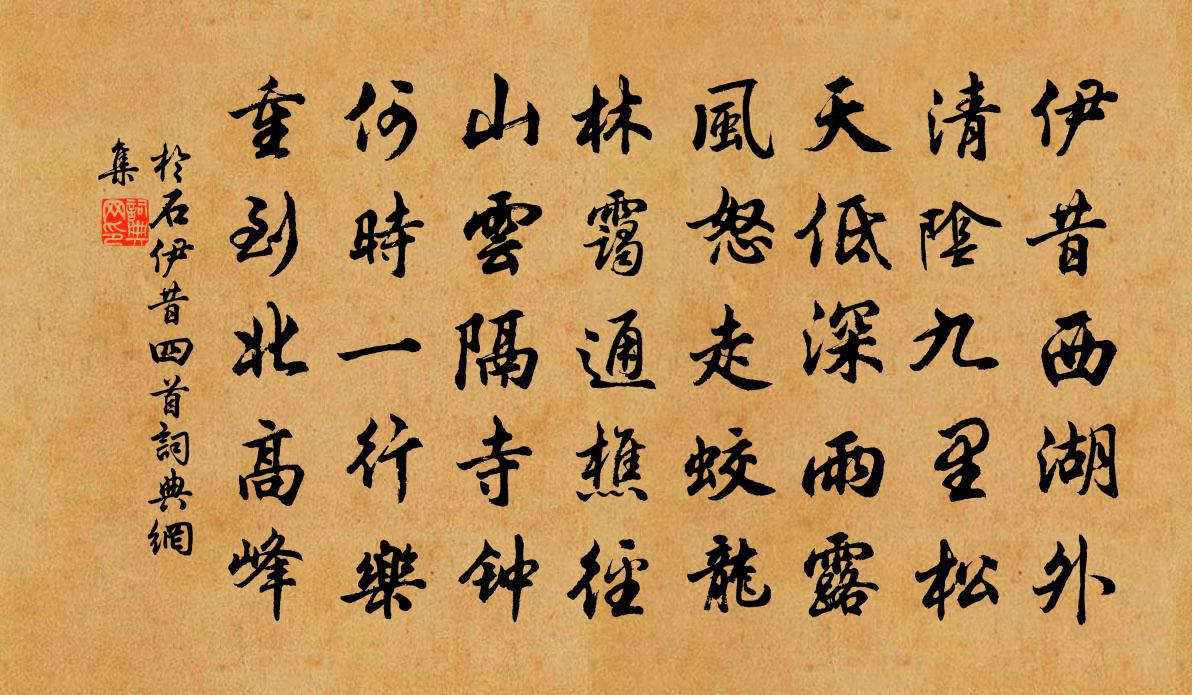 伊昔西湖外
清陰九里松
天低深雨露
風怒走蛟龍
林靄通樵徑
山雲隔寺钟
何時一行樂
重到北高峰
於石伊昔四首詞典網
集
詞典
网印